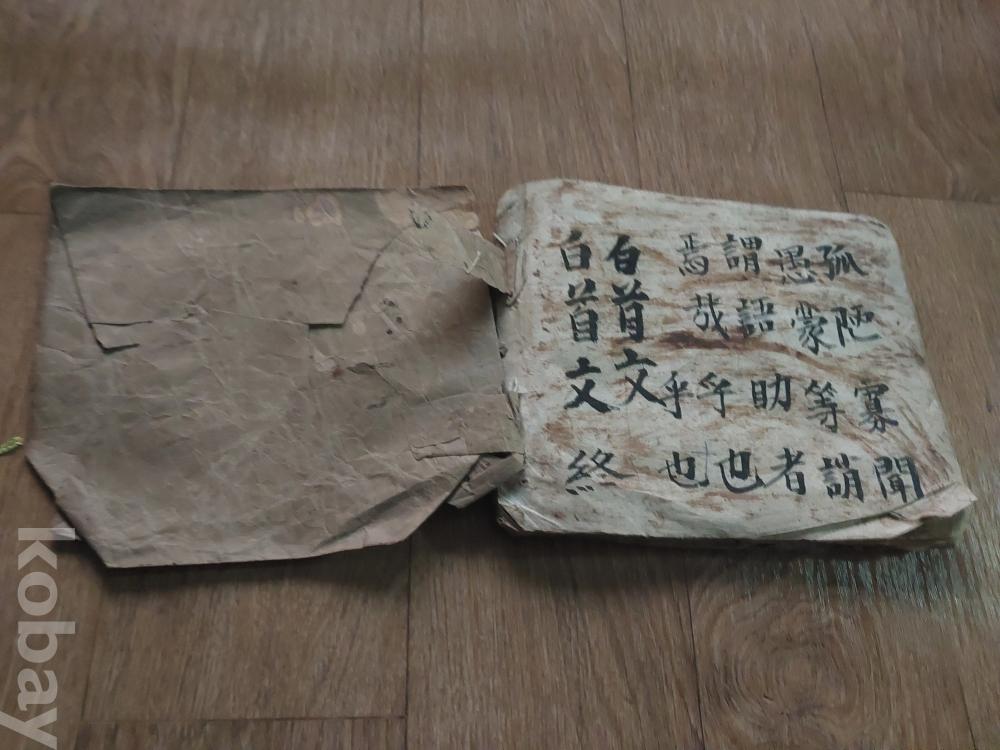 孤陋寡聞
愚蒙等誚
謂語助者
焉哉乎也
乎也
白首文
白首文終
kobay